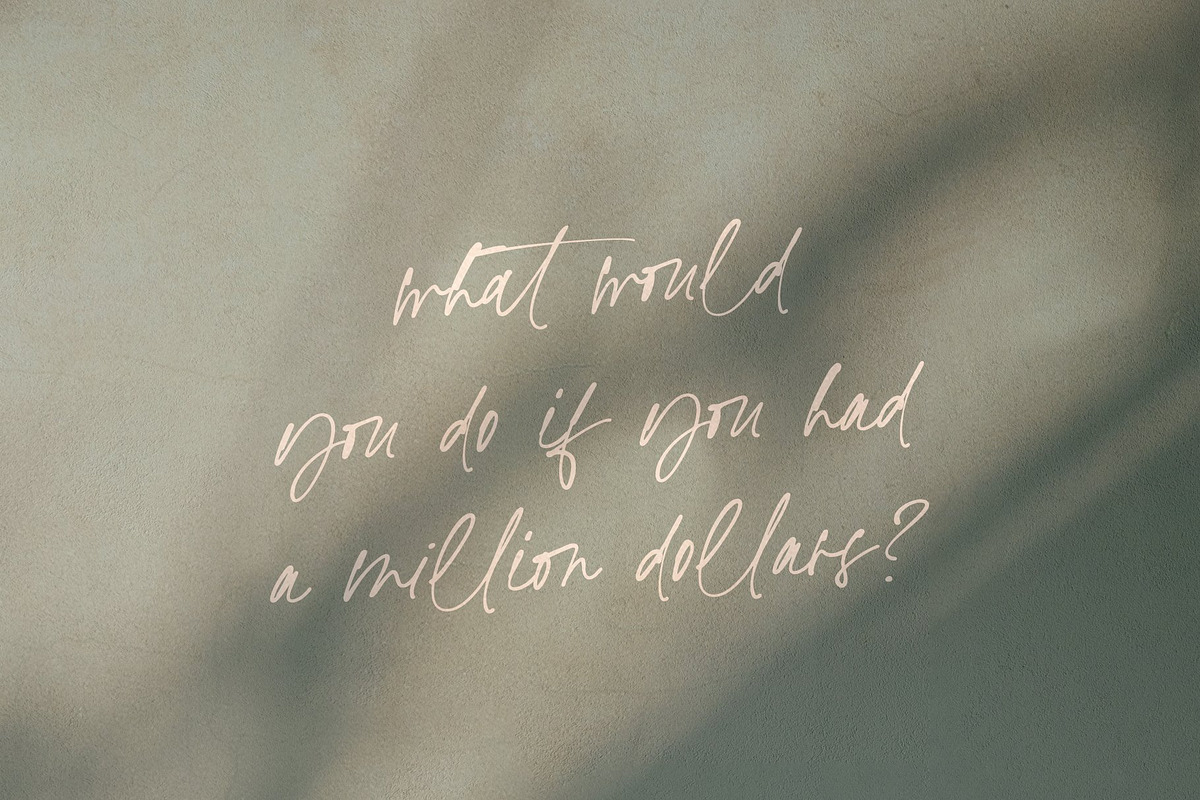 what would
you do if you had
a million dollars?